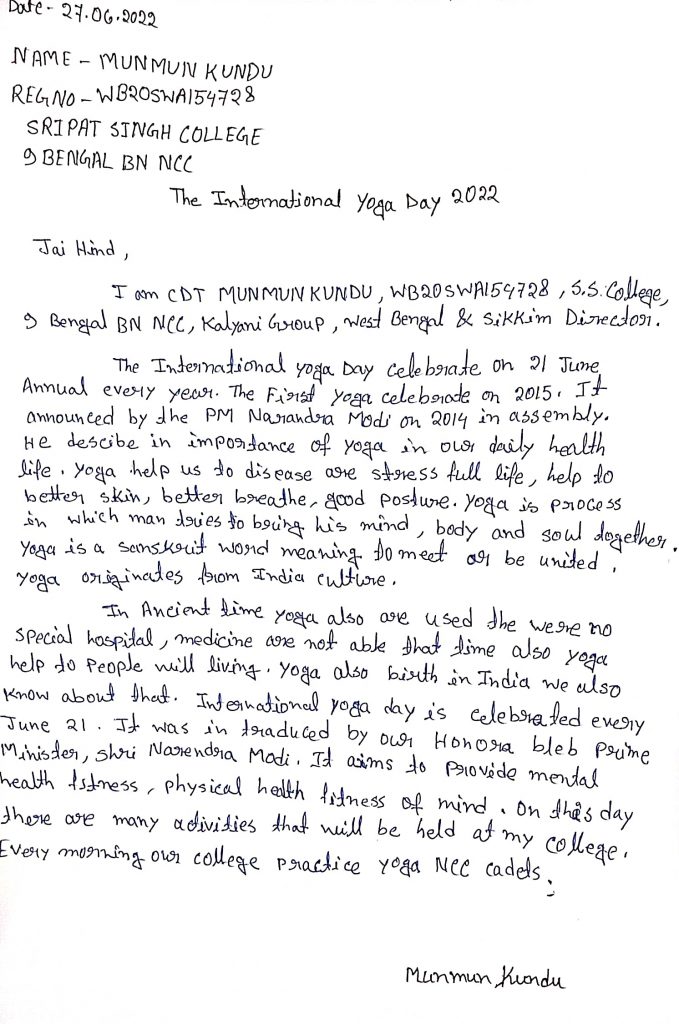 Date - 27.06.2022
NAME - MUNMUN KUNDU
REG NO - WB20SWA154728
SRIPAT SINGH COLLEGE
9 BENGAL BN NCC
The International Yoga Day 2022
Jai Hind,
I am CDT MUNMUN KUNDU, WB20SWA154728, S.S. College,
9 Bengal BN NCC, Kalyani Group, West Bengal & Sikkim Director.
The International yoga Day celebrate on 21 June
Annual every year. The First yoga celebrade on 2015. It
announced by the PM Narandra Modi on 2014 in assembly.
He descibe in importance of yoga in our daily health
life. yoga help us to disease are stress full life, help to
better skin, better breathe, good posture. yoga is process
in which man tries to bring his mind, body and soul together.
yoga is a sanskrit word meaning to meet or be united.
yoga originates from India culture.
In Ancient time yoga also are used the were no
special hospital, medicine are not able that time also yoga
help to people will living. yoga also birth in India we also
know about that. International yoga day is celebrated every
June 21. It was in traduced by our Honora bleb prime
Minister, shri Narendra Modi. It aims to provide mental
health fitness, physical health fitness of mind. On this day
there are many activities that will be held at my college.
Every morning our college practice yoga NCC cadets.
Munmun Kundu